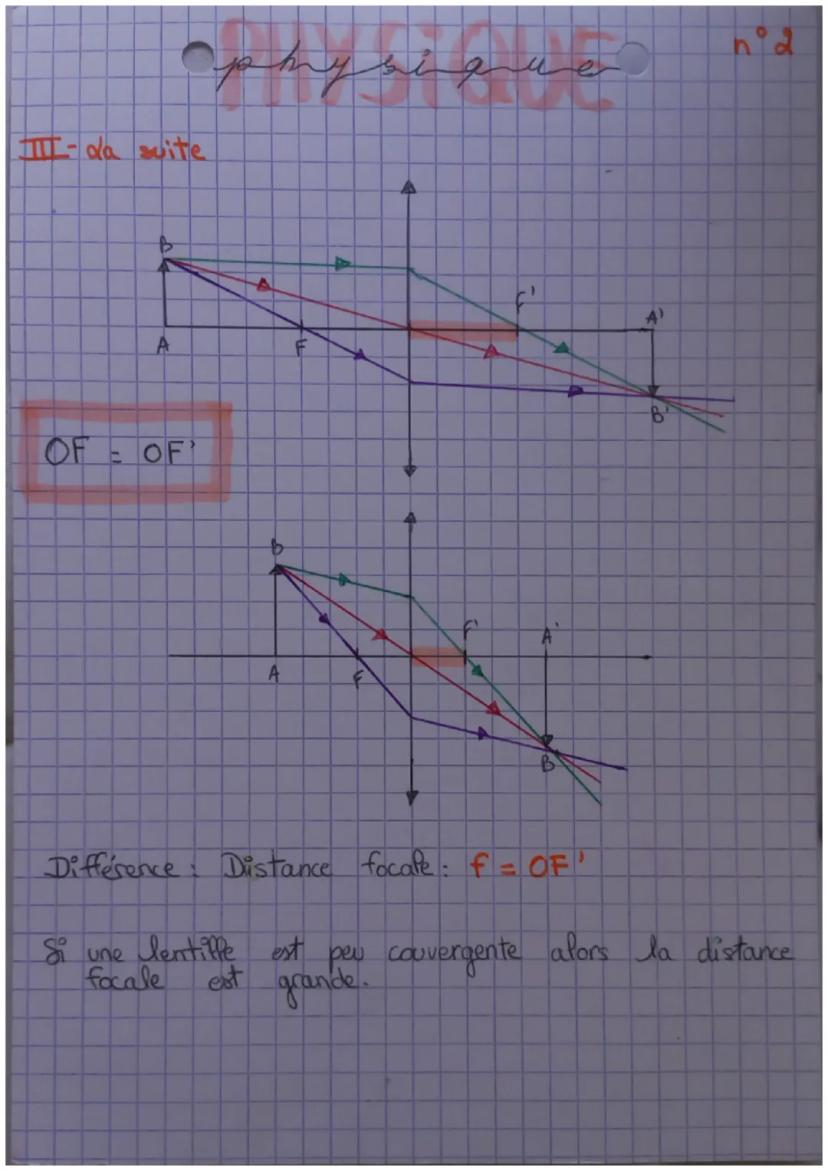 PHYSIQUE
physique
n° 2
III- La suite
B
F'
A'
A
F
B'
OF = OF'
B
F'
A'
A
F
B'
Différence : Distance focale : f = OF'
Si une lentille est peu couvergente alors la distance
focale est grande.